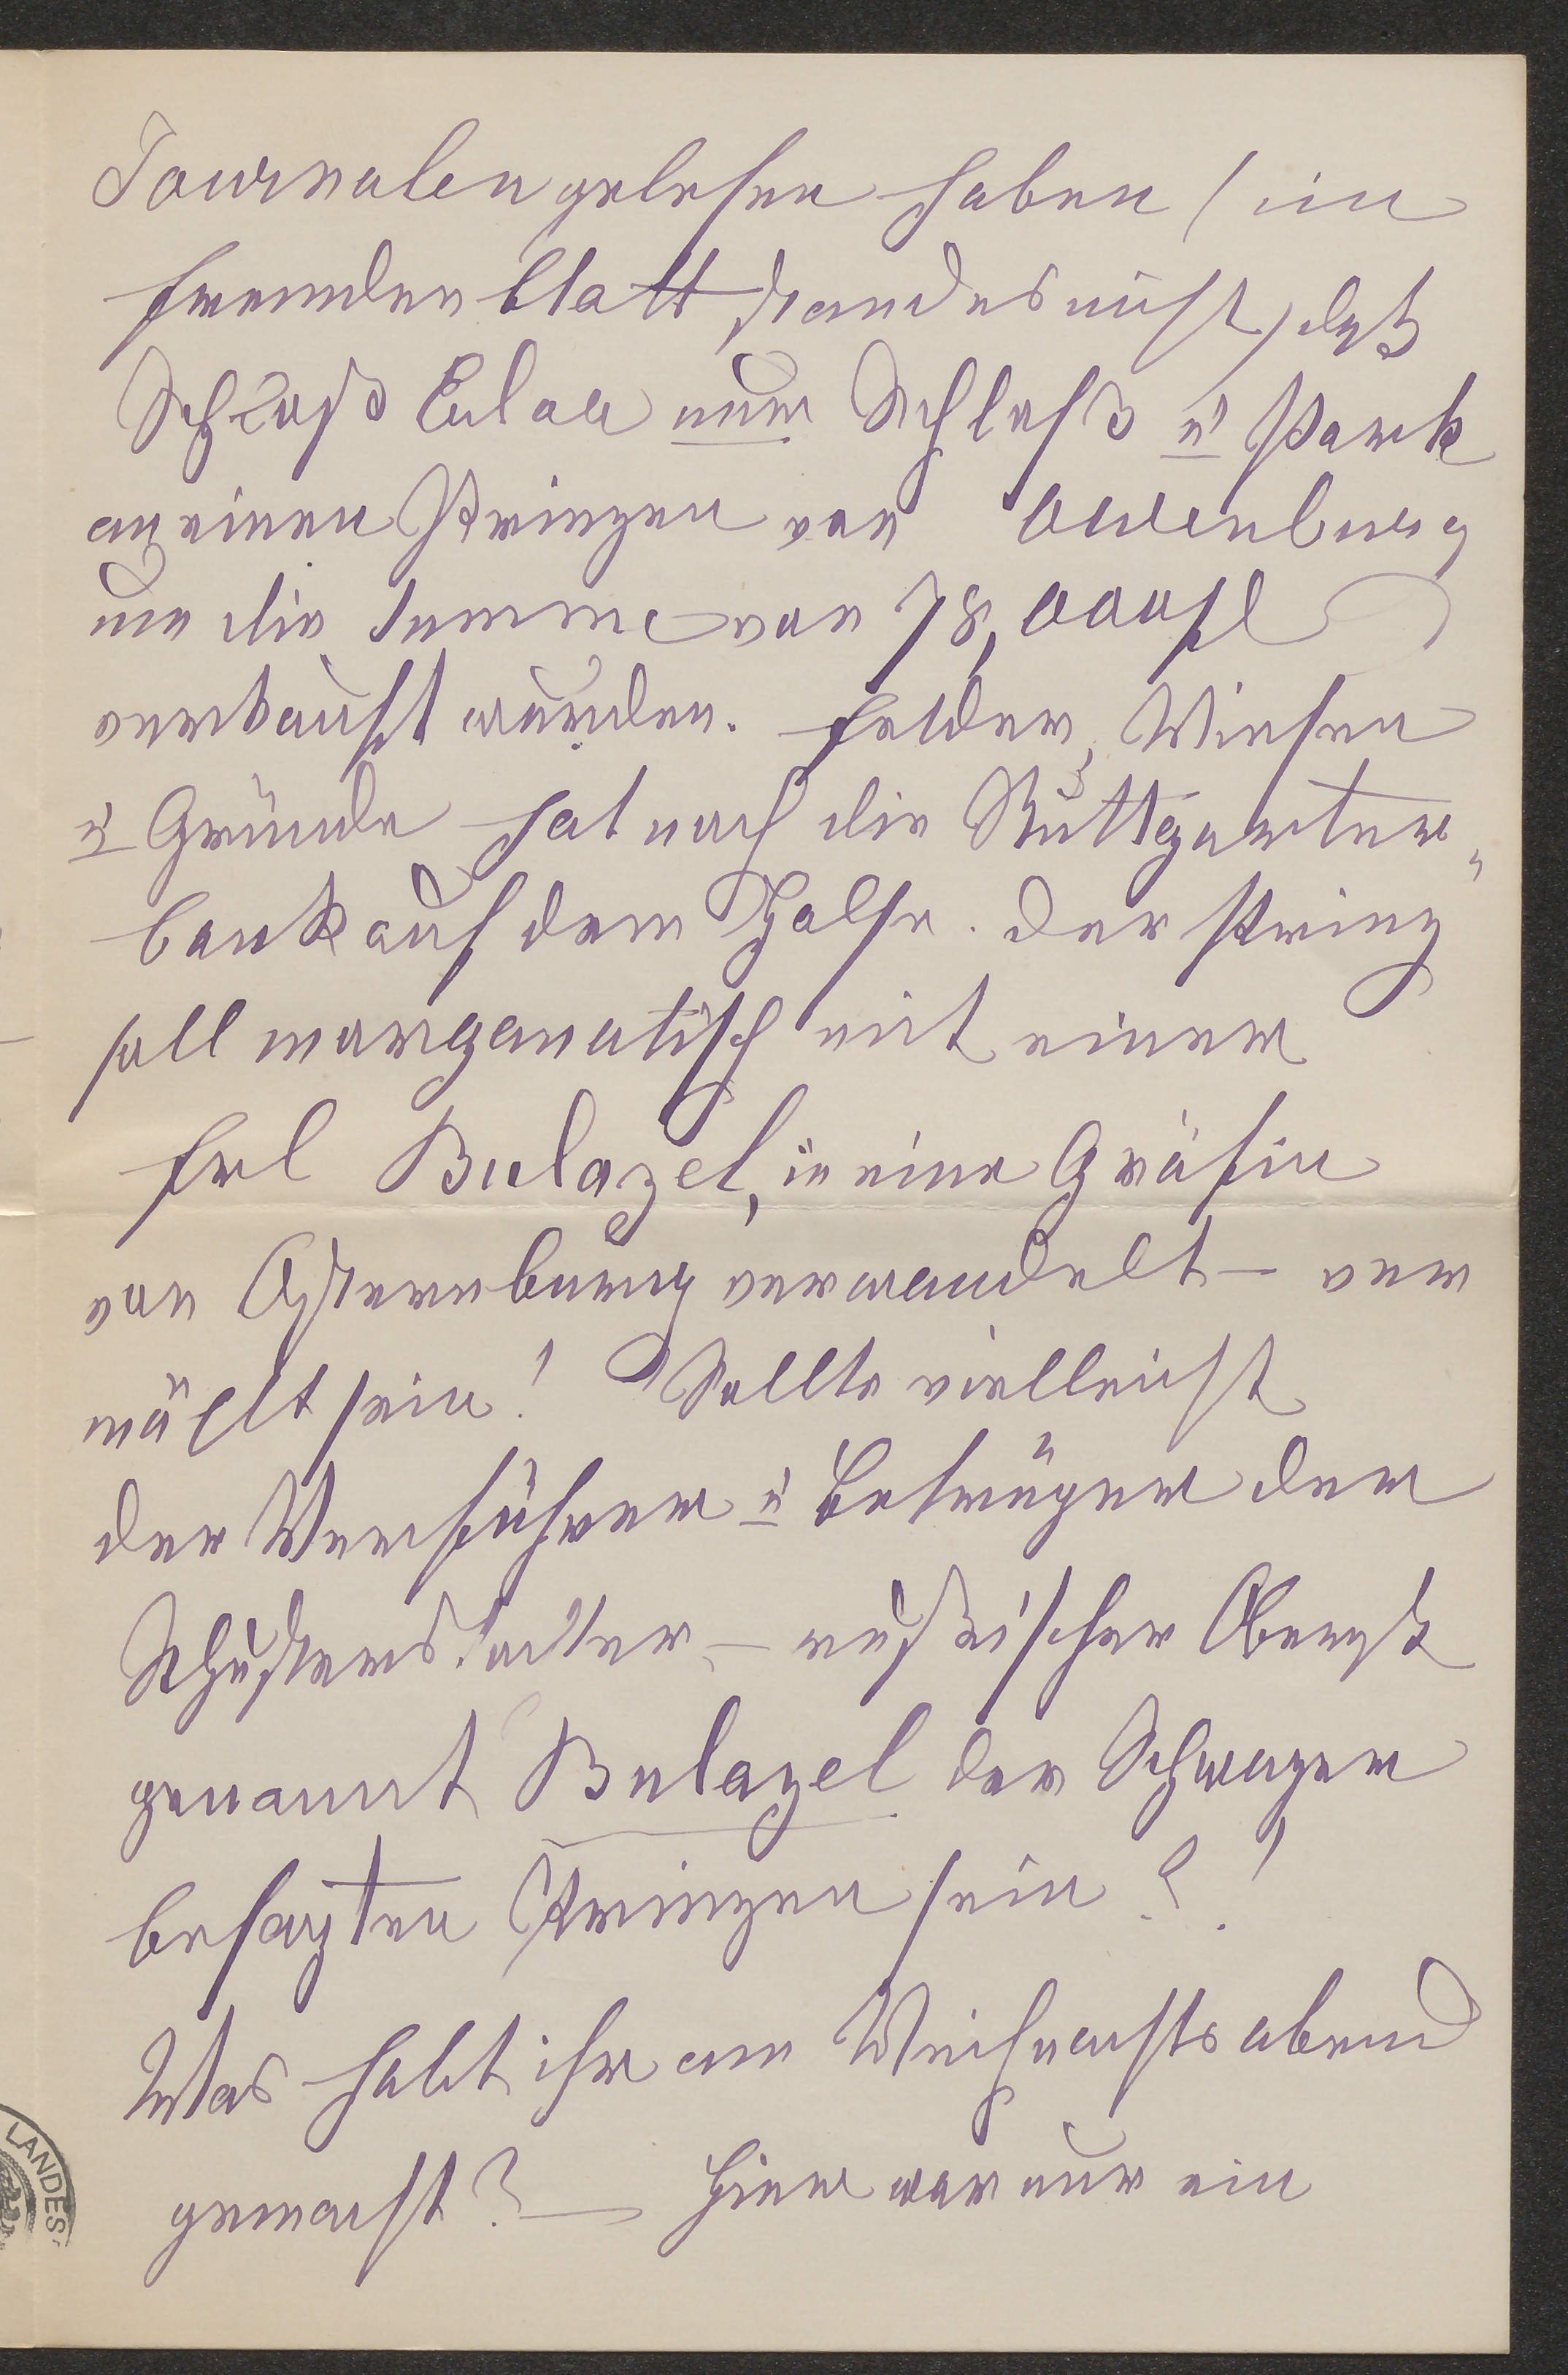 Journalen gelesen haben (im
Fremdenblatt stand es nicht) daß
Schloß Eulau nur Schloß u Park
an einen Prinzen von Oldenburg
um die Summe von 78,000 fl
verkauft wurden. Felder, Wiesen
u Gründe hat noch die Stuttgarter-
bank auf dem Halse. Der Prinz
soll morganatisch mit einer
Frl Bulazel, in eine Gräfin
von Osternburg verwandelt – ver
mählt sein! Sollte vielleicht
der Verführer u Betrüger der
Schusterstochter – russischer Oberst
genannt Bulazel der Schwager
besagten Prinzen sein?!
Was habt ihr am Weihnachtsabend
gemacht? – Hier war nur ein
LANDES